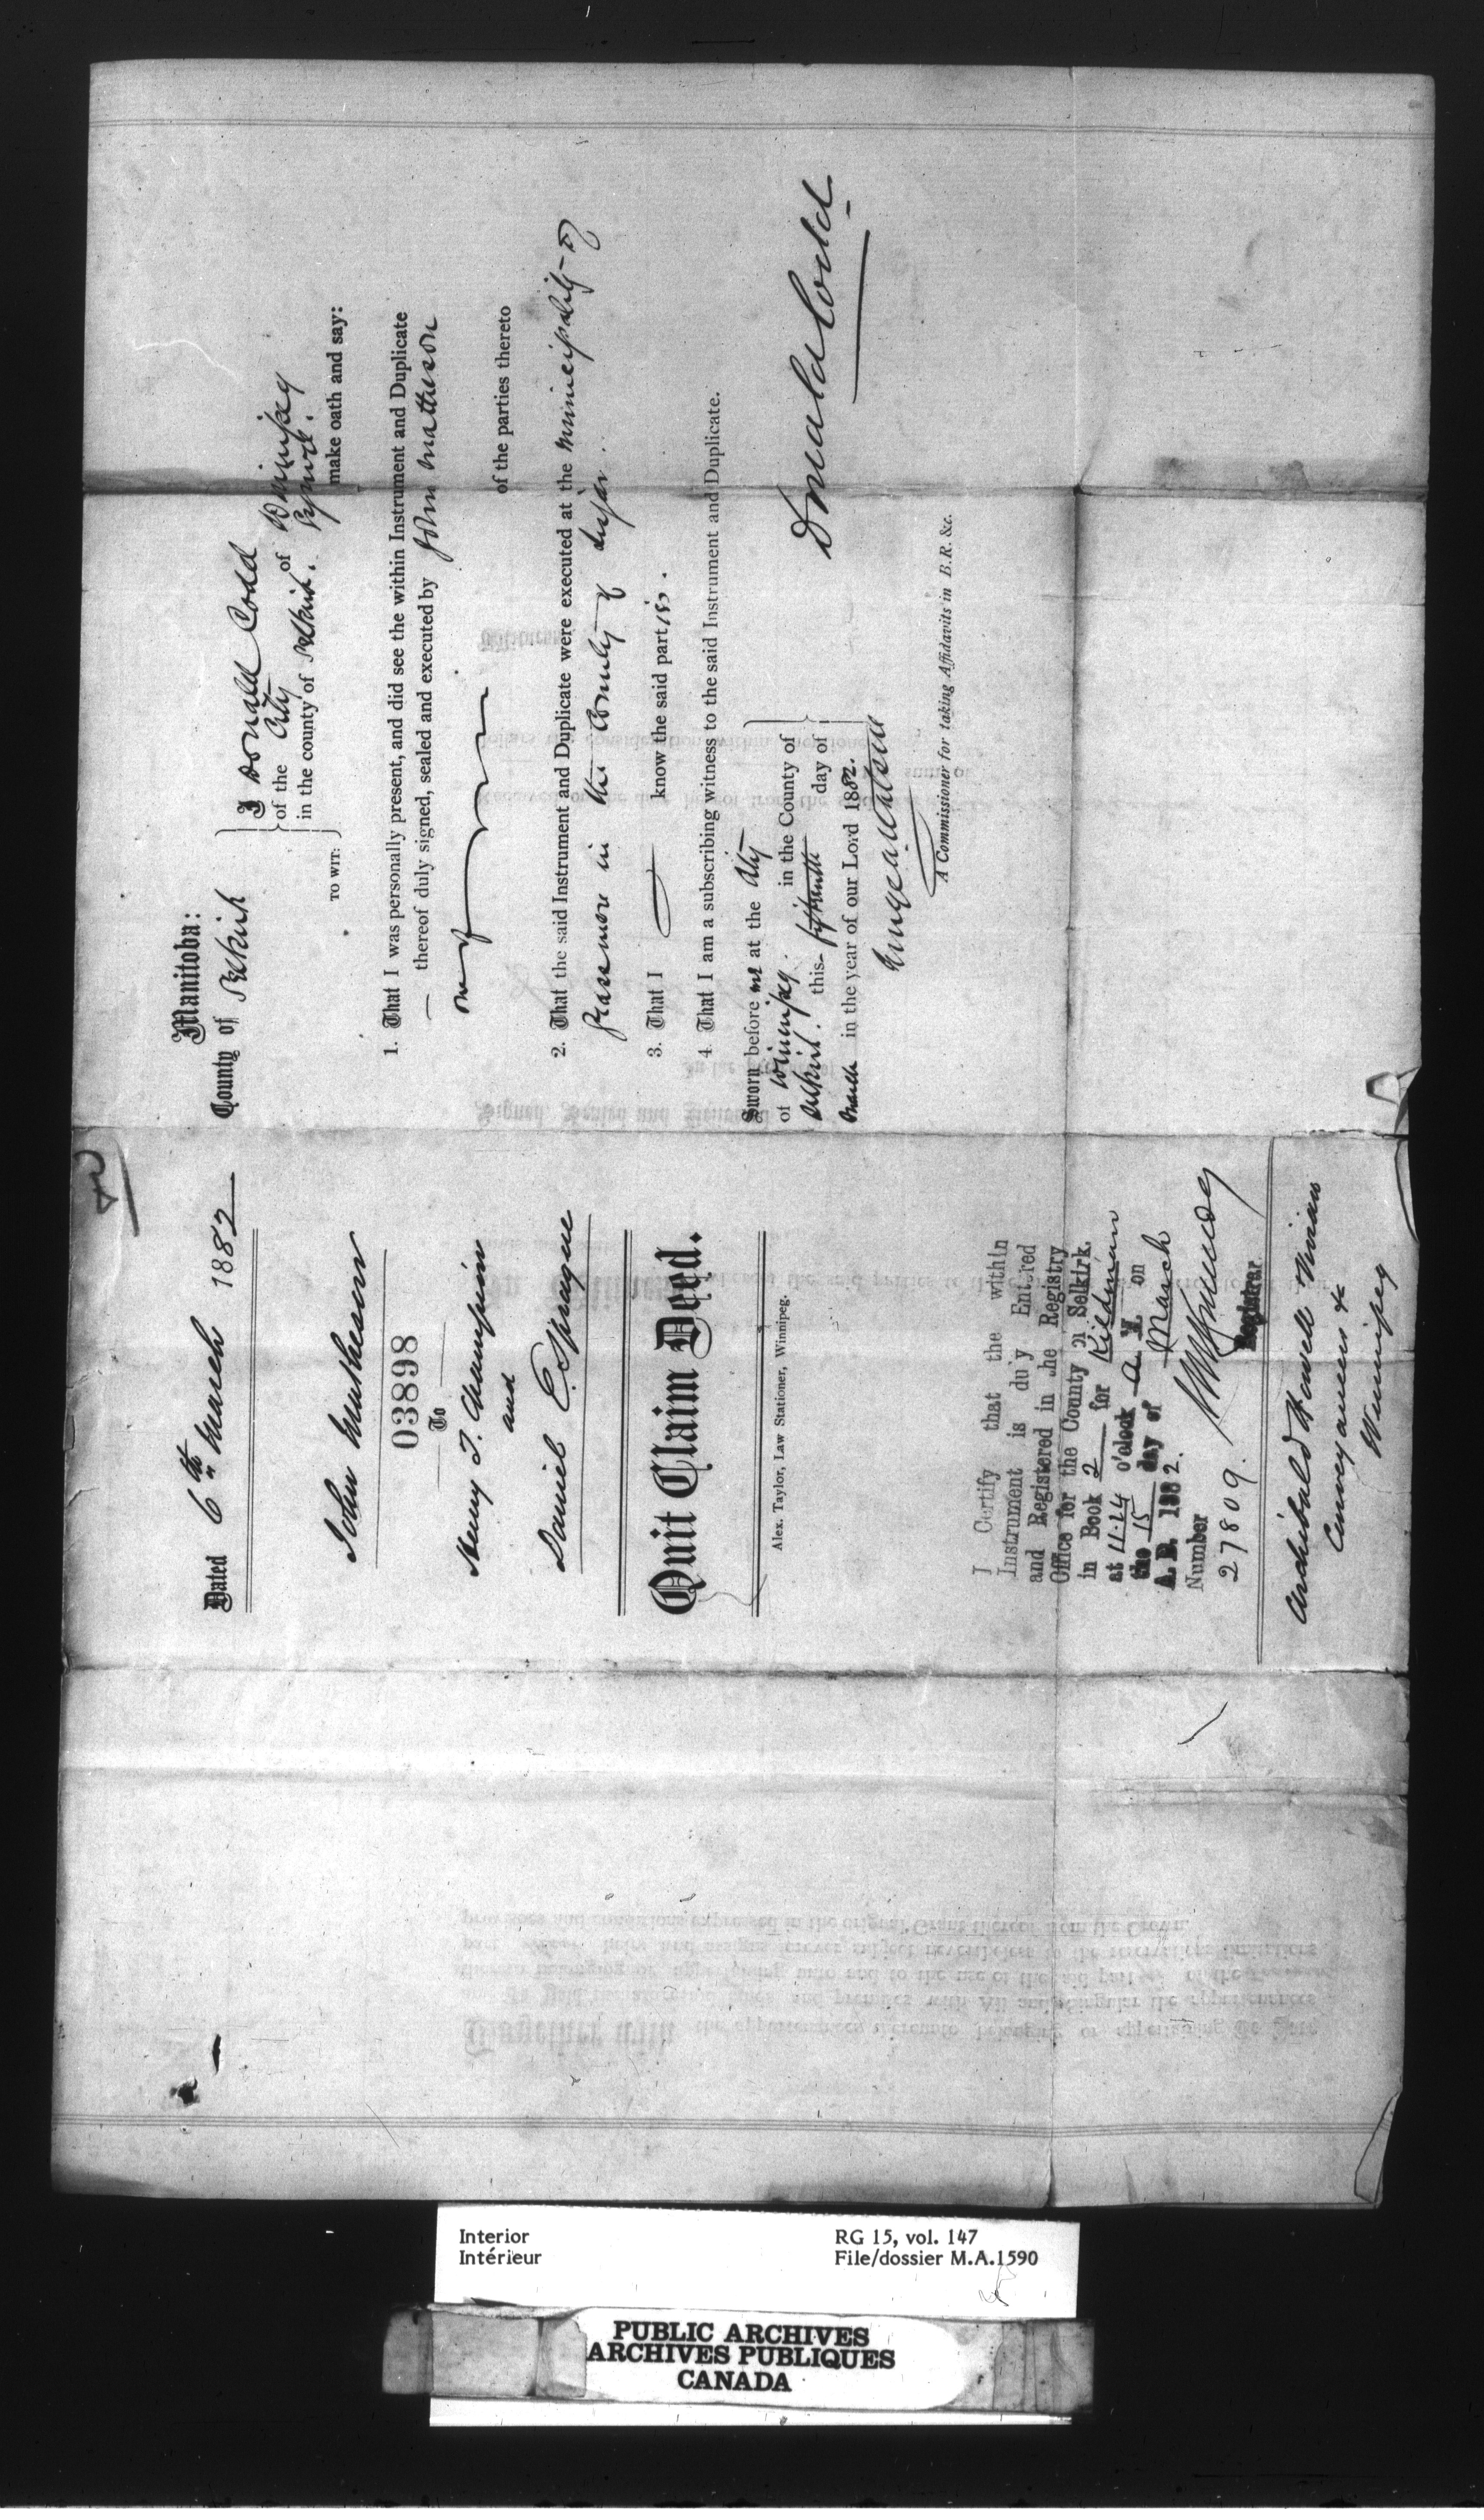 Manitoba:
County of Selkirk
TO WIT:
I Donald Codd
of the City of Winnipeg
in the county of Selkirk. Esquire.
make oath and say:
1. That I was personally present, and did see the within Instrument and Duplicate
thereof duly signed, sealed and executed by John Matheson
one
of the parties thereto
2. That the said Instrument and Duplicate were executed at the Municipality of
Grassmere in the County of Lisgar.
3. That I know the said parties.
4. That I am a subscribing witness to the said Instrument and Duplicate.
Sworn before me at the City
of Winnipeg. in the County of
Selkirk. this fifteenth day of
March in the year of our Lord 1882.
Donald Codd
A Commissioner for taking Affidavits in B.R. &c.
Dated 6th March 1882
John Matheson
03898
To
Henry T. Champion
and
Daniel E. Sprague
Quit Claim Deed.
Alex. Taylor, Law Stationer, Winnipeg.
I Certify that the within
Instrument is duly Entered
and Registered in the Registry
Office for the County of Selkirk.
in Book 2 for Kildonan
at 11.14 o'clock A. M. on
the 15 day of March
A. D. 1882.
Number
27809.
Registrar
Archibald Howell Vivian
Conveyancer &c
Winnipeg
Interior
Intérieur
RG 15, vol. 147
File/dossier M.A.1590
PUBLIC ARCHIVES
ARCHIVES PUBLIQUES
CANADA